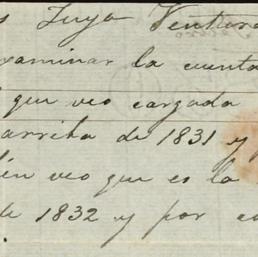 s Suya Ventura
xaminar la cuenta
que veo cargada
arriba de 1831 y
ién veo que es la
de 1832 y por